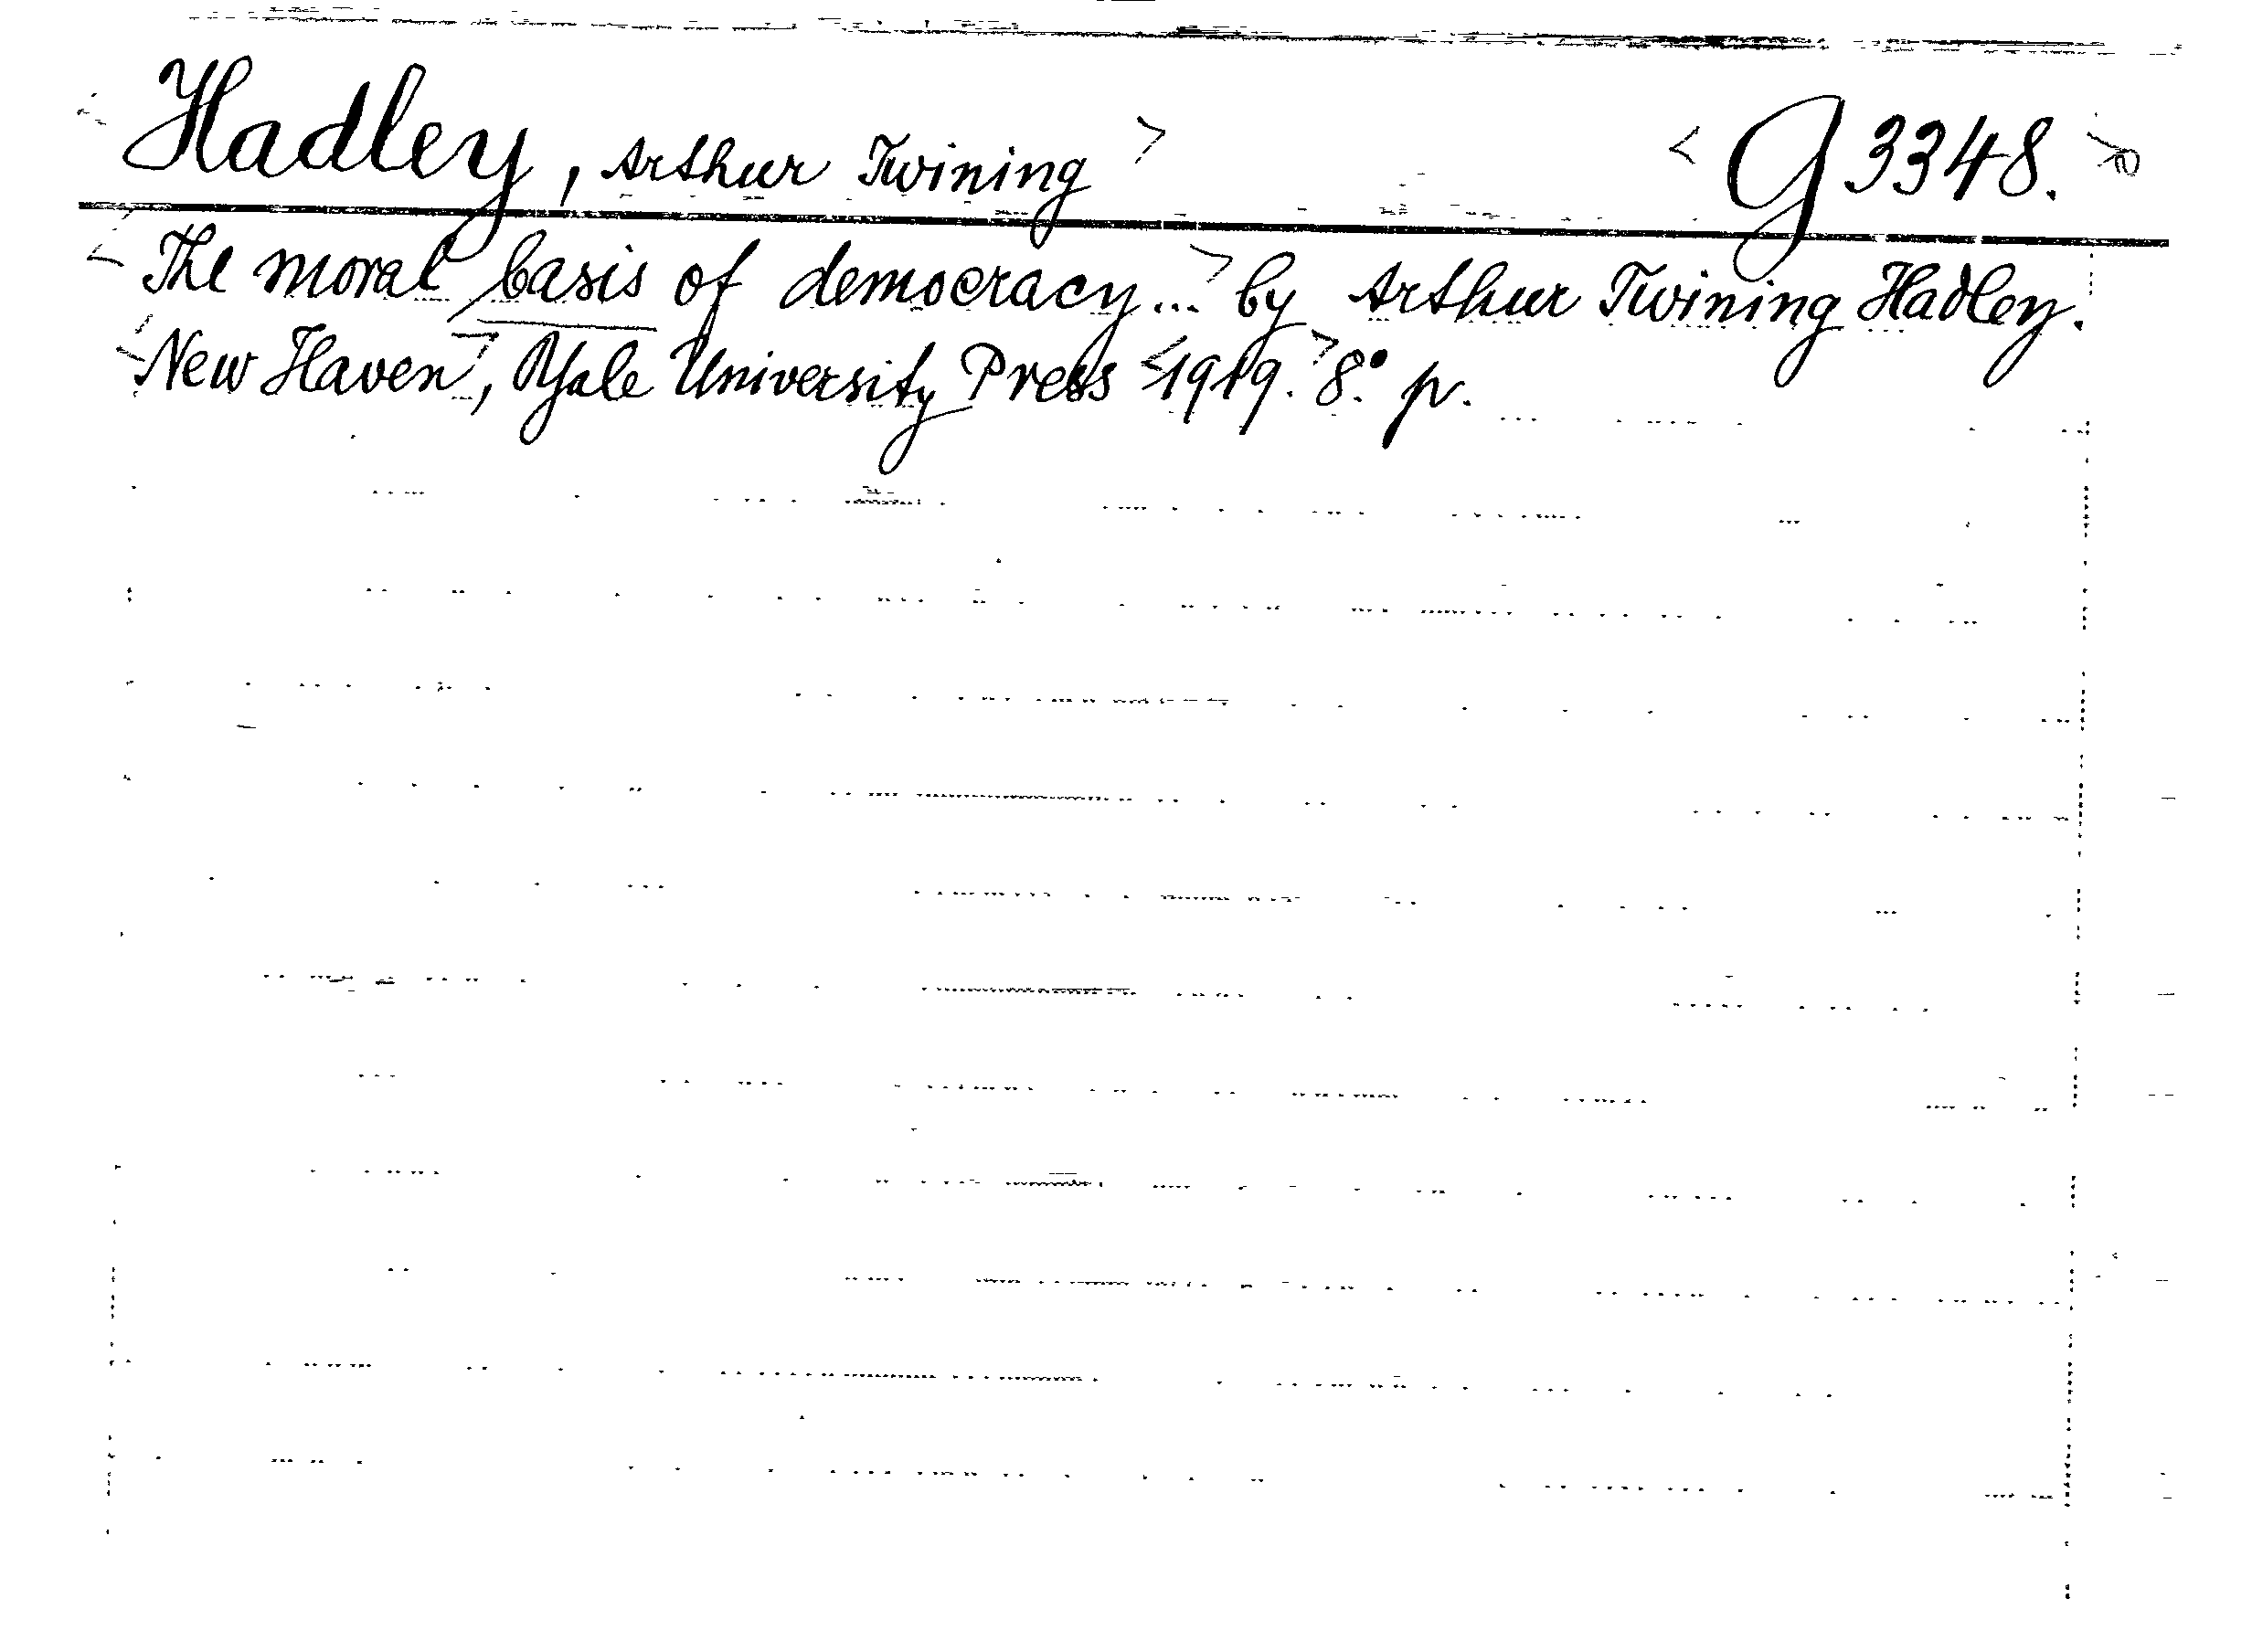 Hadley, Arthur Twining > < G 3348. >
< The moral basis of democracy...> by Arthur Twining Hadley.
< New Haven >, Yale University Press < 1919. > 8.° p.